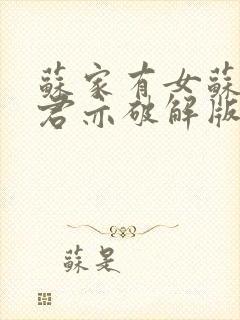 蘇家有女蘇
君亦破解版
蘇是